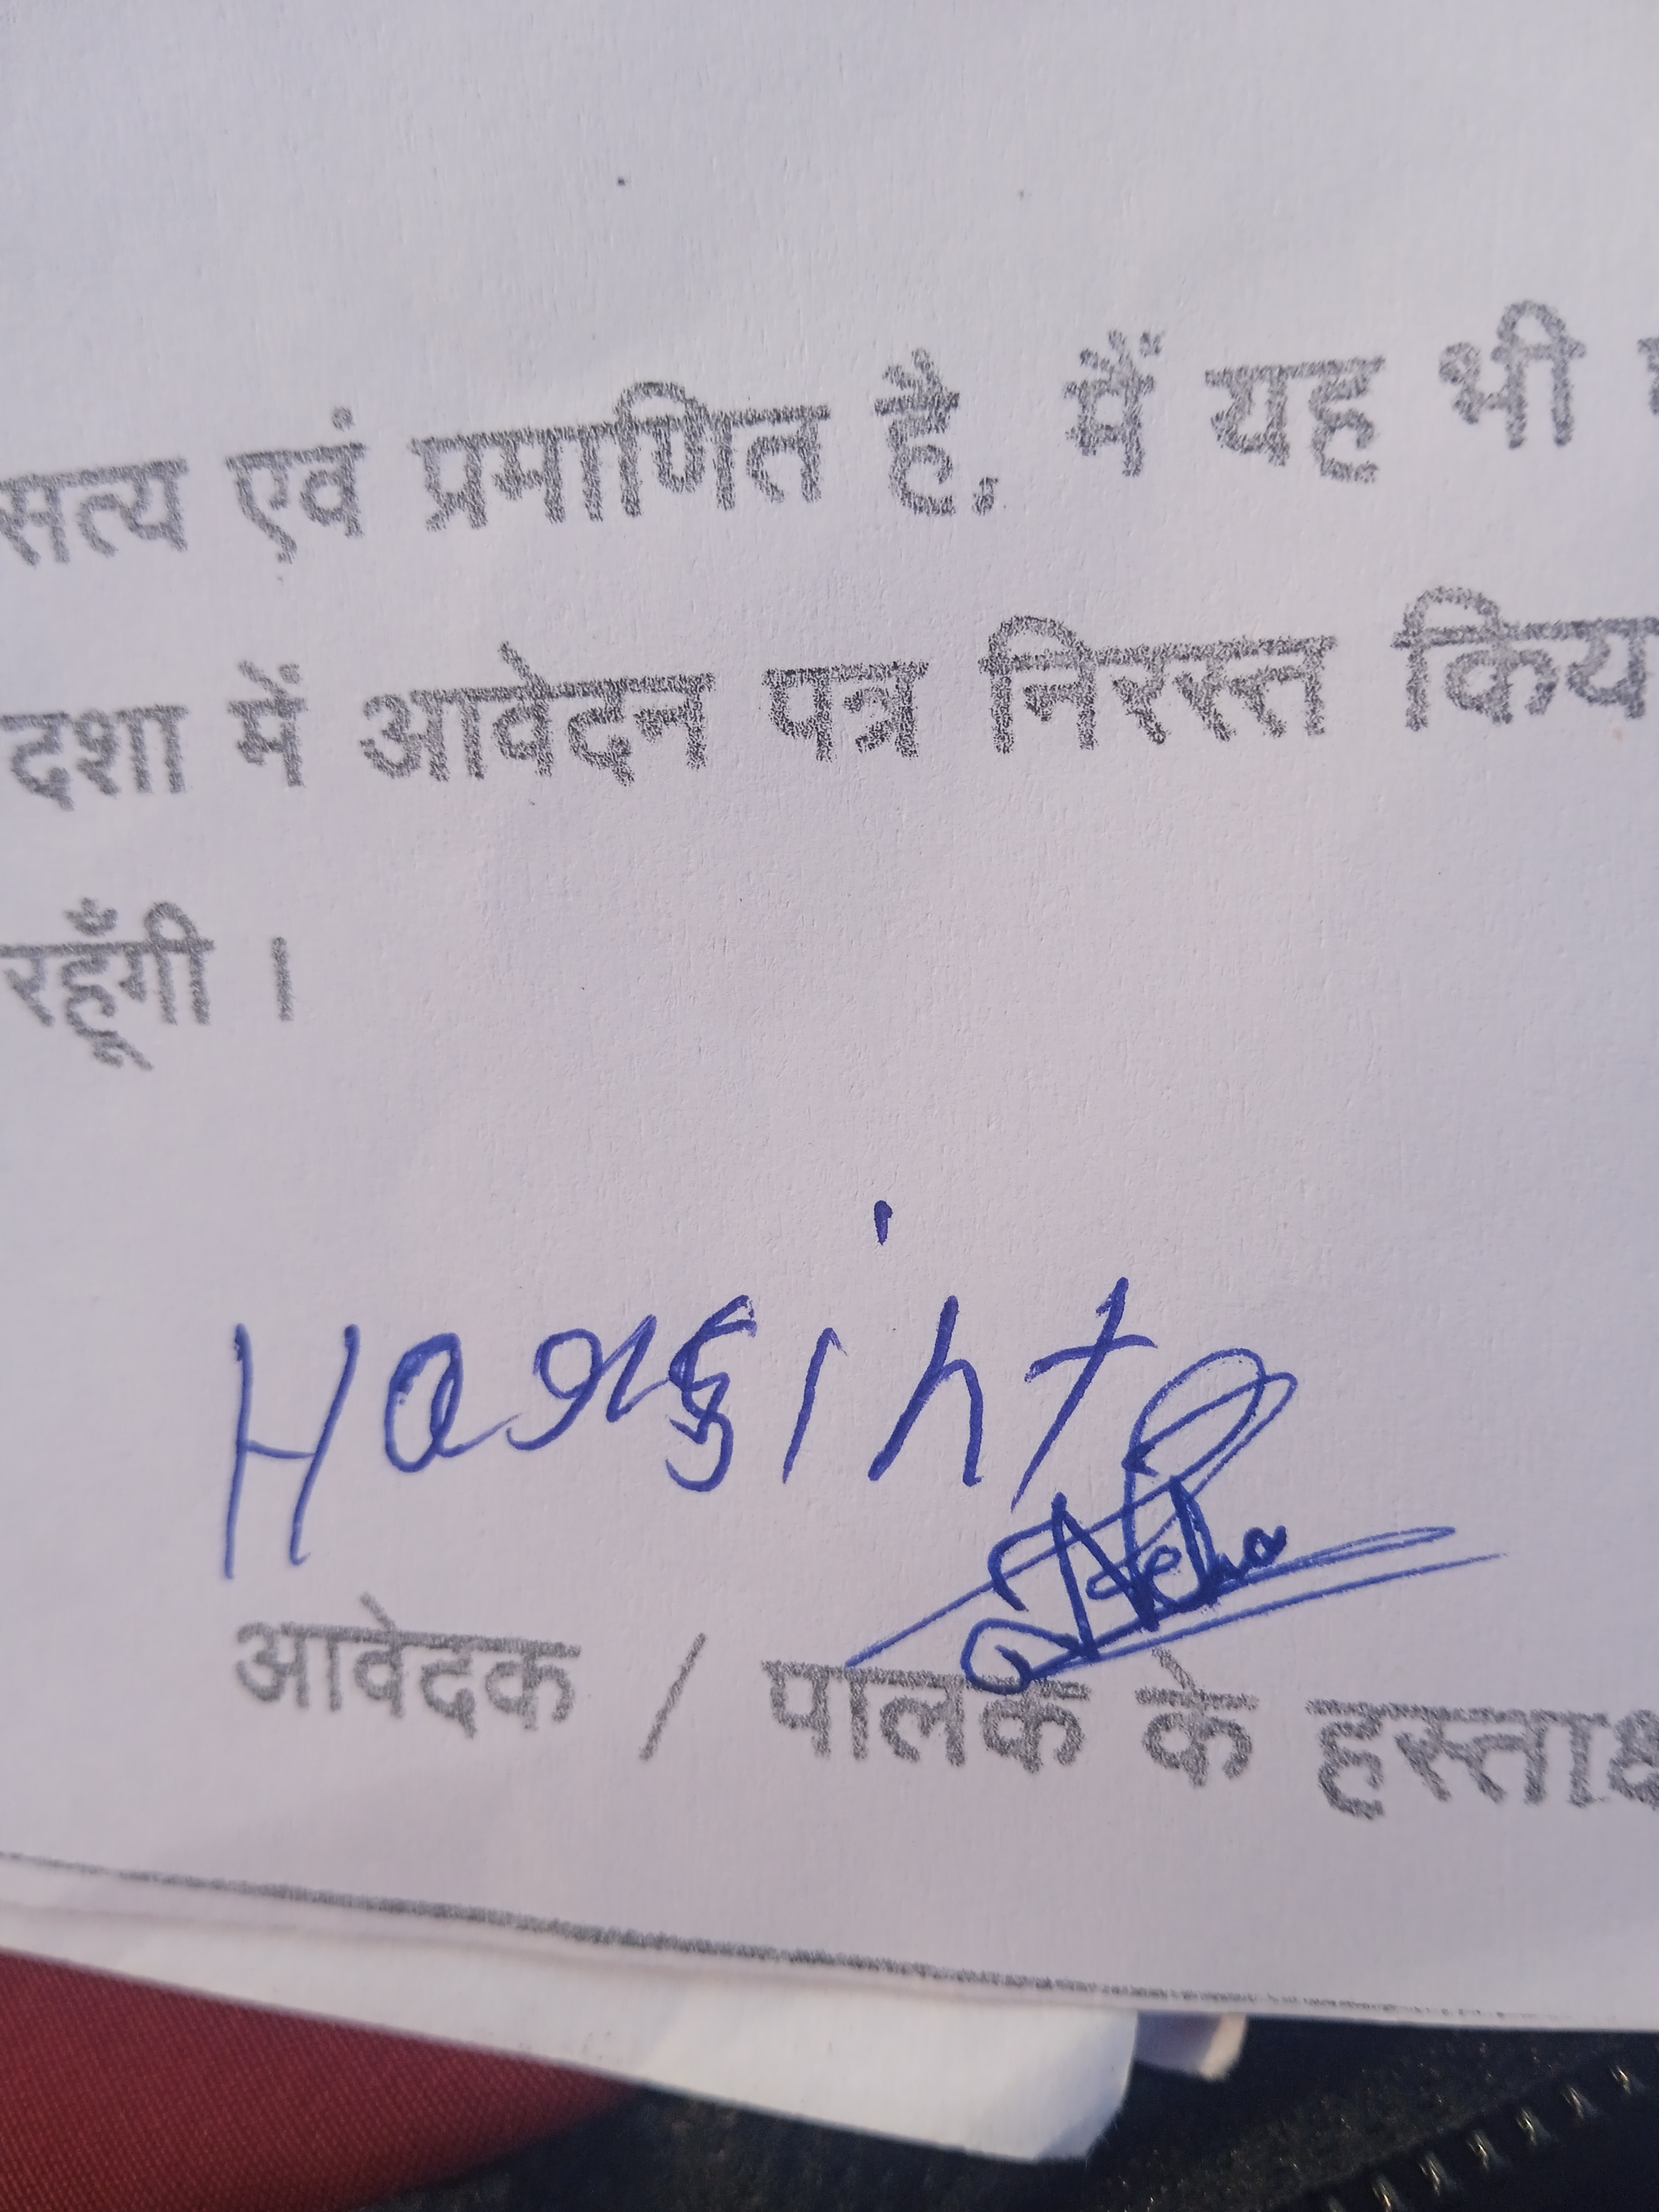 सत्य एवं प्रमाणित है, मैं यह भी
दशा में आवेदन पत्र निरस्त किय
रहूँगी ।
Neha
आवेदक / पालक के हस्ताक्ष